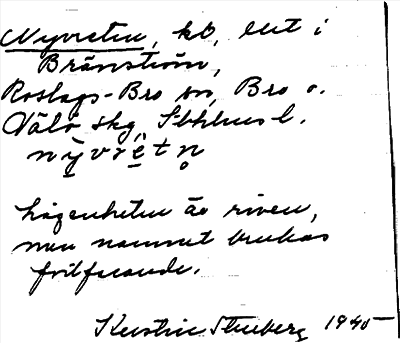 Nyvreten, kb, beb. i
Bränström,
Roslags-Bro sn, Bro o.
Väddö skg, Sthlms l.
nỵ̄vrētn̥
lägenheten är riven,
men namnet brukas
fortfarande.
Kerstin Stenberg 1940